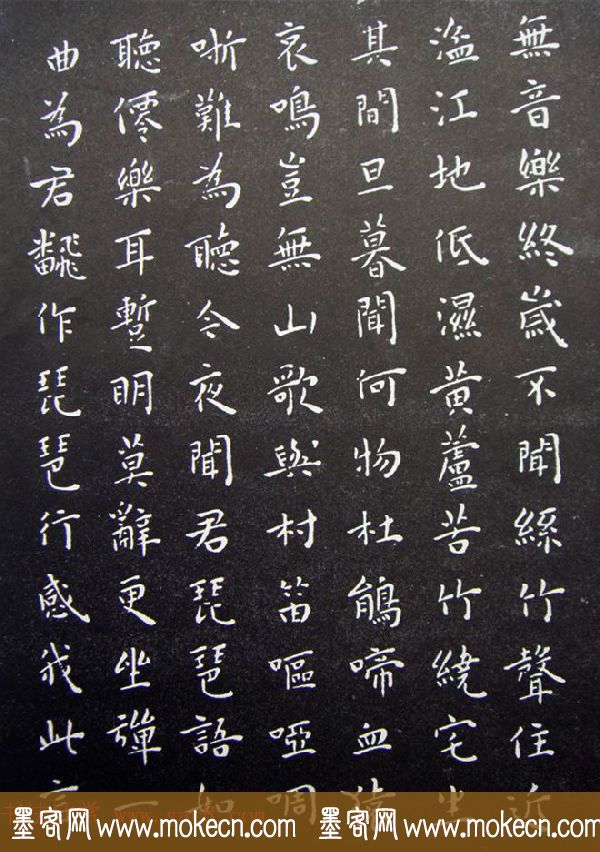 無音樂終歲不聞絲竹聲住近
湓江地低濕黃蘆苦竹繞宅生
其間旦暮聞何物杜鵑啼血猿
哀鳴豈無山歌與村笛嘔啞啁
哳難為聽今夜聞君琵琶語如
聽僊樂耳暫明莫辭更坐彈一
曲為君飜作琵琶行感我此言
墨客网 www.mokecn.com 墨客网 www.mokecn.com